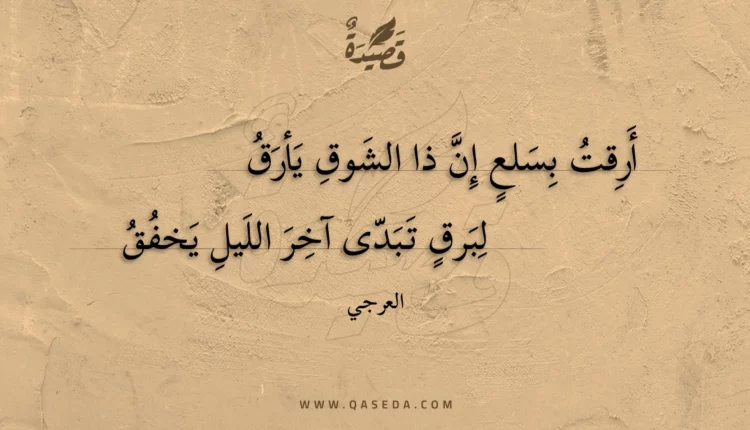 قصيدة
أَرِقتُ بِسَلعٍ إِنَّ ذا الشَوقِ يَأرَقُ
لِبَرقٍ تَبَدّى آخِرَ اللَيلِ يَخفُقُ
العرجي
WWW.QASEDA.COM